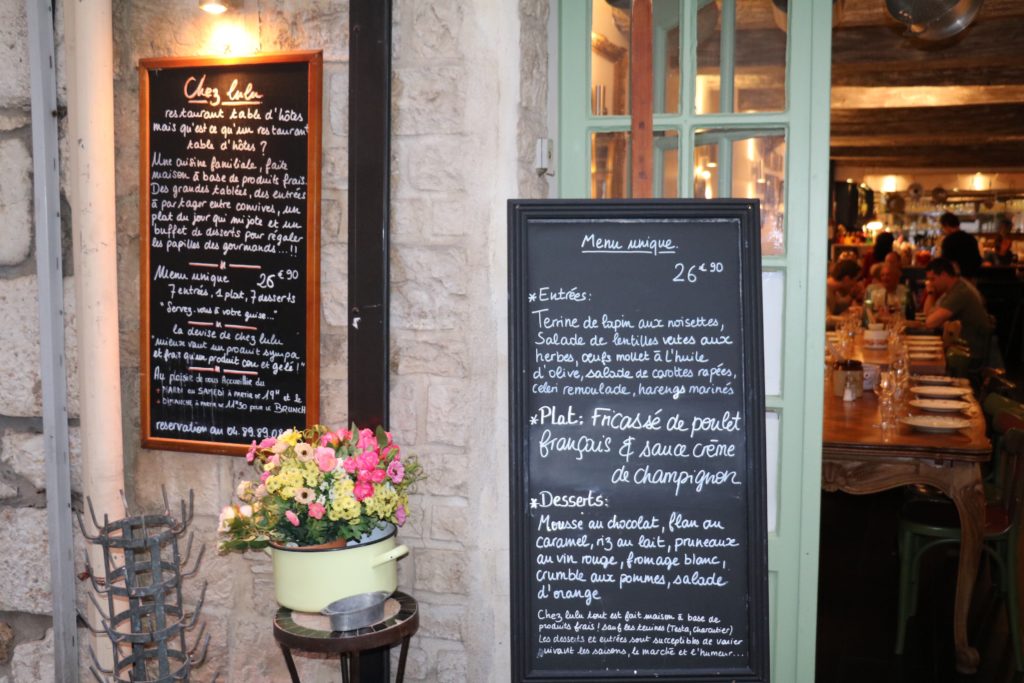 Chez lulu
restaurant table d'hôtes
mais qu'est ce qu'un restaurant
table d'hôtes ?
Une cuisine familiale, faite
maison à base de produits frais.
Des grandes tablées, des entrées
à partager entre convives, un
plat du jour qui mijote et un
buffet de desserts pour régaler
les papilles des gourmands...!!
Menu unique 26€90
7 entrées, 1 plat, 7 desserts
"Servez-vous à votre guise..."
la devise de chez lulu
"mieux vaut un produit sympa
et frais qu'un produit con et gelé !"
Au plaisir de vous Accueillir du
MARDI au SAMEDI à partir de 19H et le
DIMANCHE à partir de 11H30 pour le BRUNCH
reservation au 04.89.89.08
Menu unique.
26€90
*Entrées:
Terrine de lapin aux noisettes,
Salade de lentilles vertes aux
herbes, œufs mollet à l'huile
d'olive, salade de carottes rapées,
celeri remoulade, harengs marinés
*Plat: Fricassé de poulet
français & sauce crème
de champignon
*Desserts:
Mousse au chocolat, flan au
caramel, riz au lait, pruneaux
au vin rouge, fromage blanc,
crumble aux pommes, salade
d'orange
Chez lulu tout est fait maison à base de
produits frais ! sauf les terrines (Testa, Charcutier)
Les desserts et entrées sont susceptibles de varier
suivant les saisons, le marché et l'humeur...